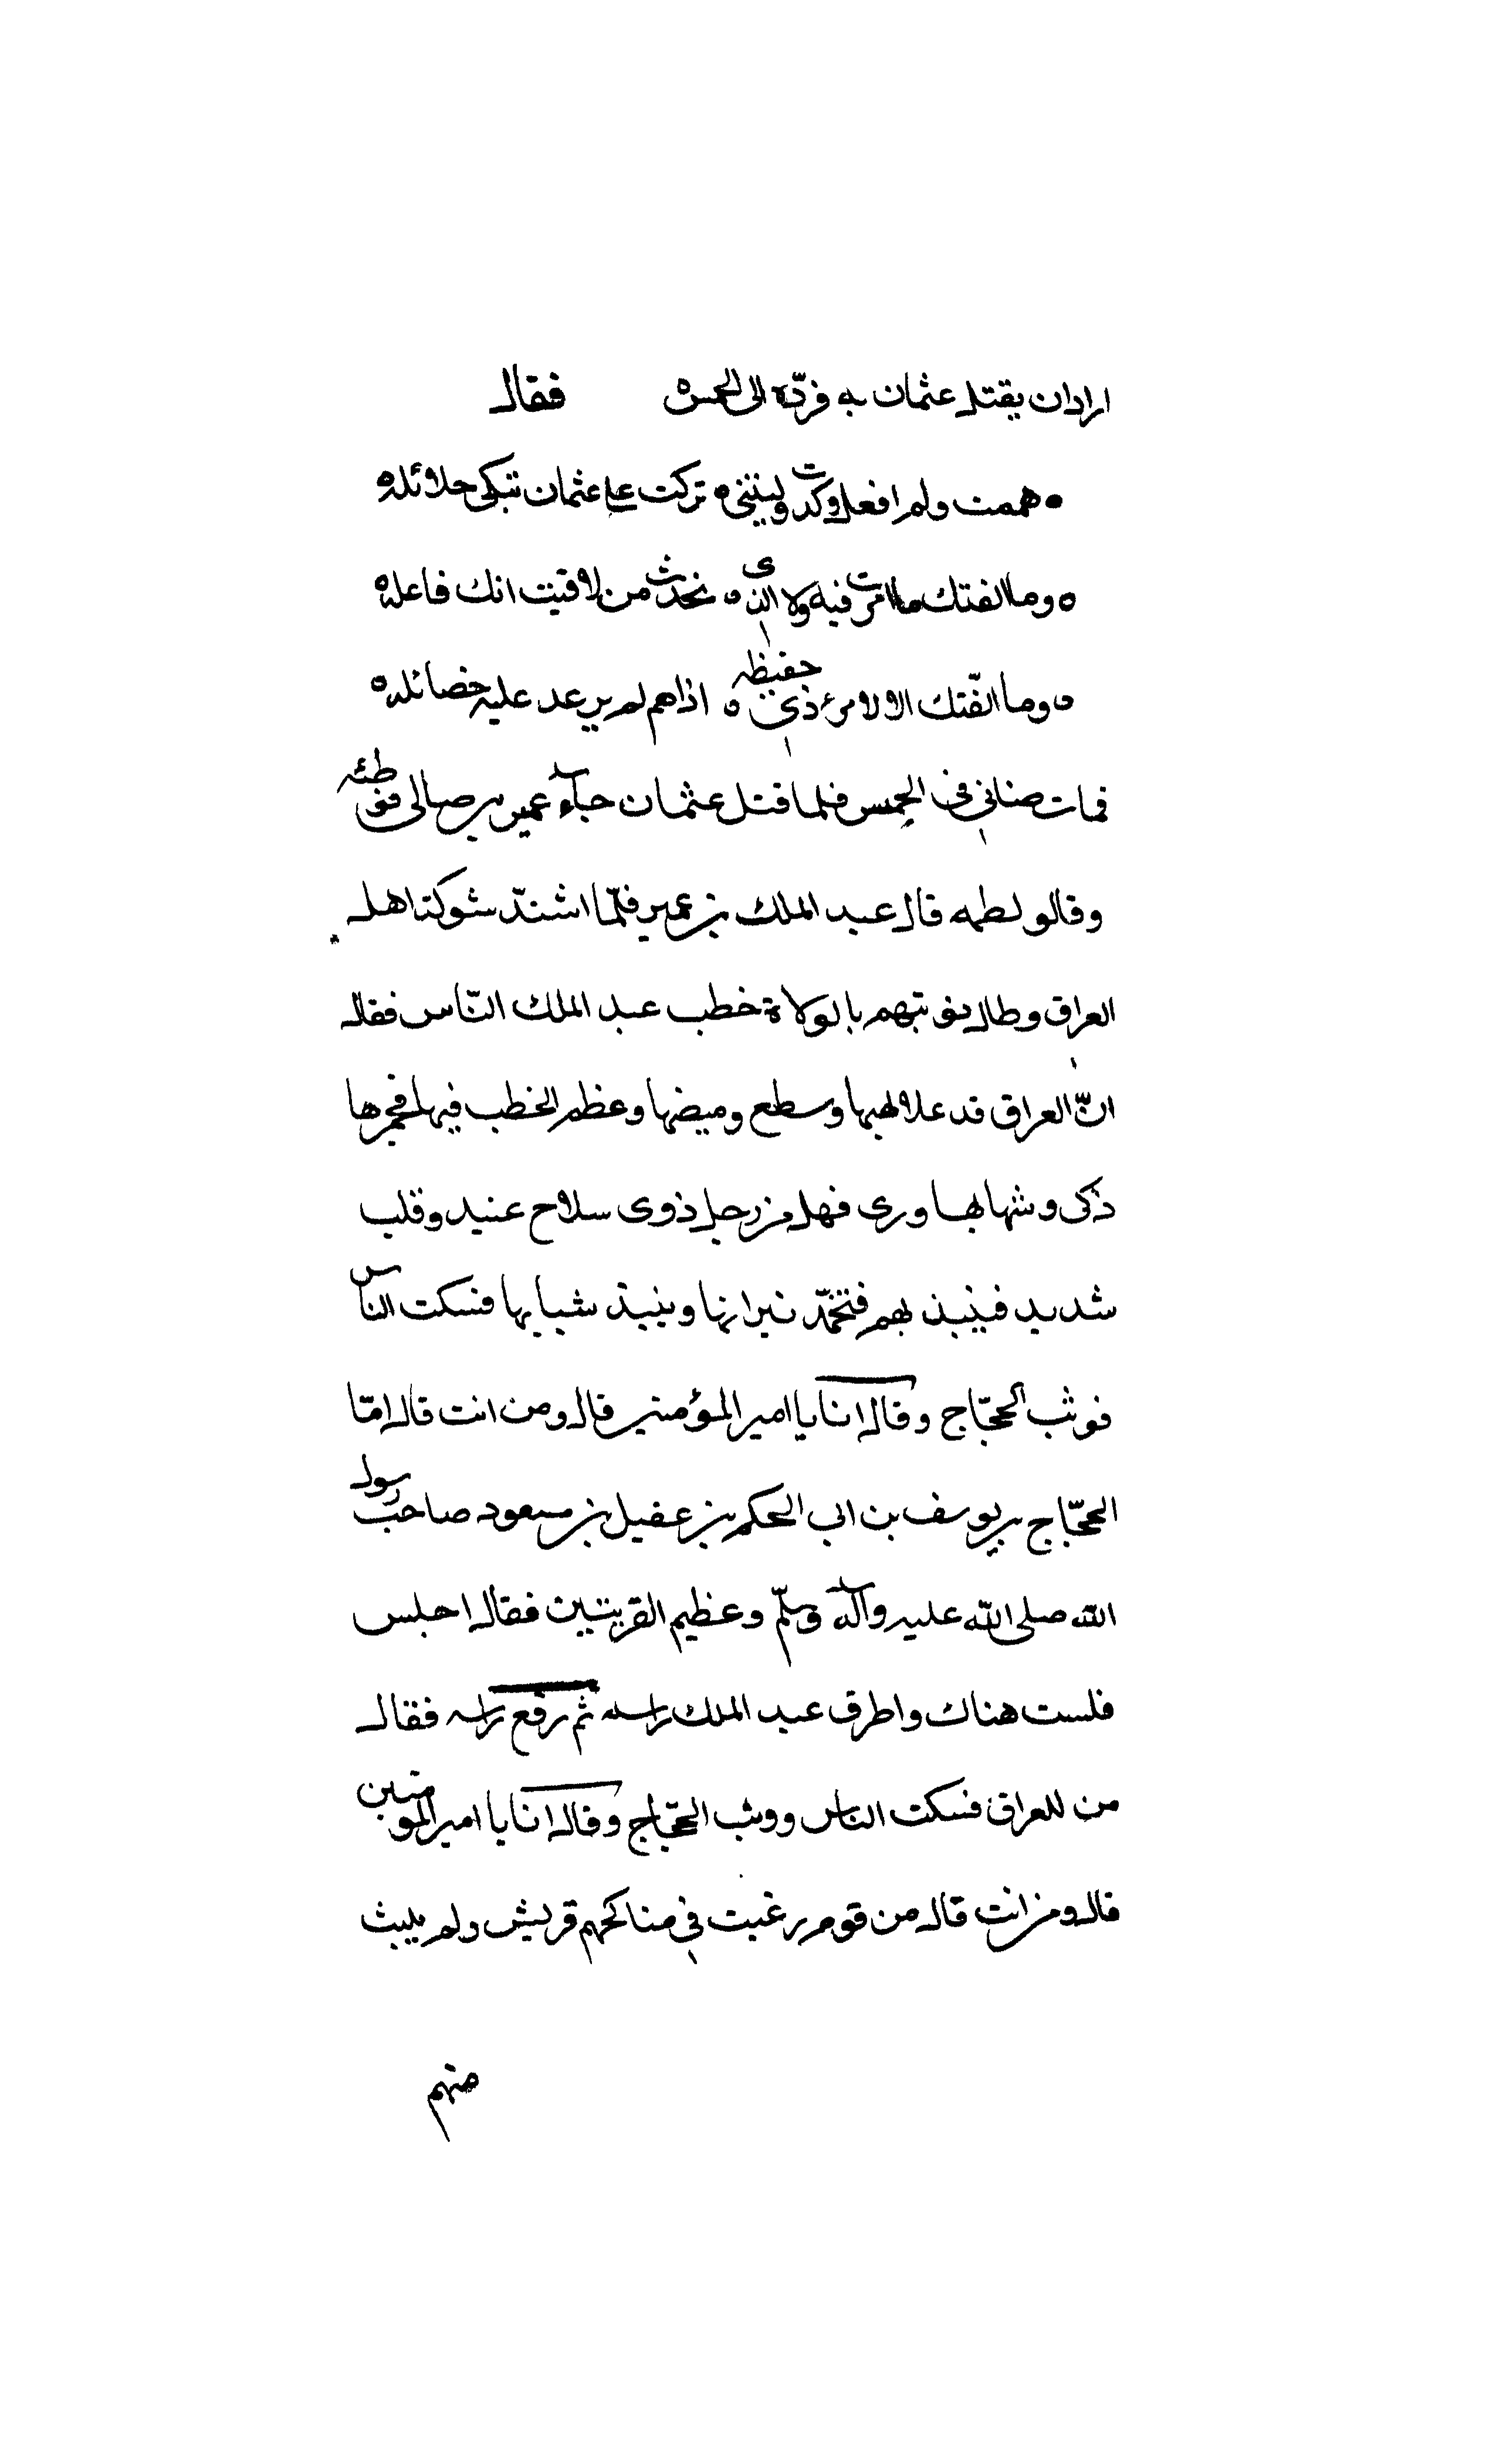 اراد ان يقتل عثمان به فردّه الى الحبس ه فقال
ه هممت ولم افعل وكدت وليتنى ه تركت على عثمان تبكى حلائله ه
ه وما الفتك ما امرت فيه ولا الذى ه تحدث من لاقيت انك فاعله
ه وما الفتك الا لامرء ذى حفيظه ه اذا هم لم يرعد عليه خصائله ه
فمات ضابى فى الحبس فلما قتل عثمان جاء عمير بن ضابى فوطئه
وقالو لطمه قال عبد الملك بن عمير فلمّا اشتدّ شوكة اهل
العراق وطال بهم بالولاة خطب عبد الملك النّاس فقال
انّ العراق قد علا لهبها وسطع وميضها وعظم الخطب فيها فجمرها
ذكى وشهابها ورى فهل من رجل ذوى سلاح عتيد وقلب
شديد فينبذ لهم فتخمّد نيرانها وينبذ شبابها فسكت الناس
فوثب الحجّاج وقال انا يا امير المؤمنين قال ومن انت قال امّا
الحجّاج بن يوسف بن ابى الحكم بن عقيل بن مسعود صاحب رسول
الله صلى الله عليه وآله وسلّم وعظيم القريتين فقال اجلس
فلست هناك واطرق عبد الملك راسه ثم رفع راسه فقال
من للعراق فسكت الناس ووثب الحجّاج وقال انا يا امير المومنين
قال ومن انت قال من قوم رغبت فى مناكحهم قريش ولم يلبث
منهم